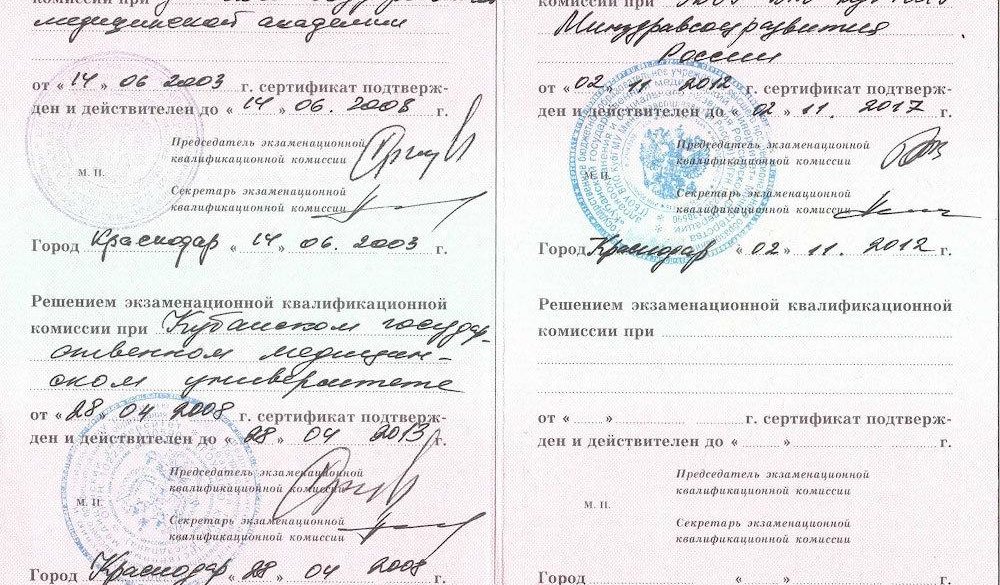 комиссии при
медицинской академии
от « 14 » 06 2003 г. сертификат подтверж-
ден и действителен до « 14 » 06. 2008 г.
Председатель экзаменационной
квалификационной комиссии
М. П.
Секретарь экзаменационной
квалификационной комиссии
Город Краснодар « 14 » 06. 2003 г.
Решением экзаменационной квалификационной
комиссии при Кубанском государ-
ственном медицин-
ском университете
от « 28 » 04 2008 г. сертификат подтверж-
ден и действителен до « 28 » 04 2013 г.
Председатель экзаменационной
квалификационной комиссии
М. П.
Секретарь экзаменационной
квалификационной комиссии
Город Краснодар « 28 » 04 2008 г.
комиссии при
Минздравсоцразвития
России
от « 02 » 11 2012 г. сертификат подтверж-
ден и действителен до « 02 » 11. 2017 г.
Председатель экзаменационной
квалификационной комиссии
М. П.
Секретарь экзаменационной
квалификационной комиссии
Город Краснодар « 02 » 11. 2012 г.
Решением экзаменационной квалификационной
комиссии при
от « » г. сертификат подтверж-
ден и действителен до « » г.
Председатель экзаменационной
квалификационной комиссии
М. П.
Секретарь экзаменационной
квалификационной комиссии
Город « » г.